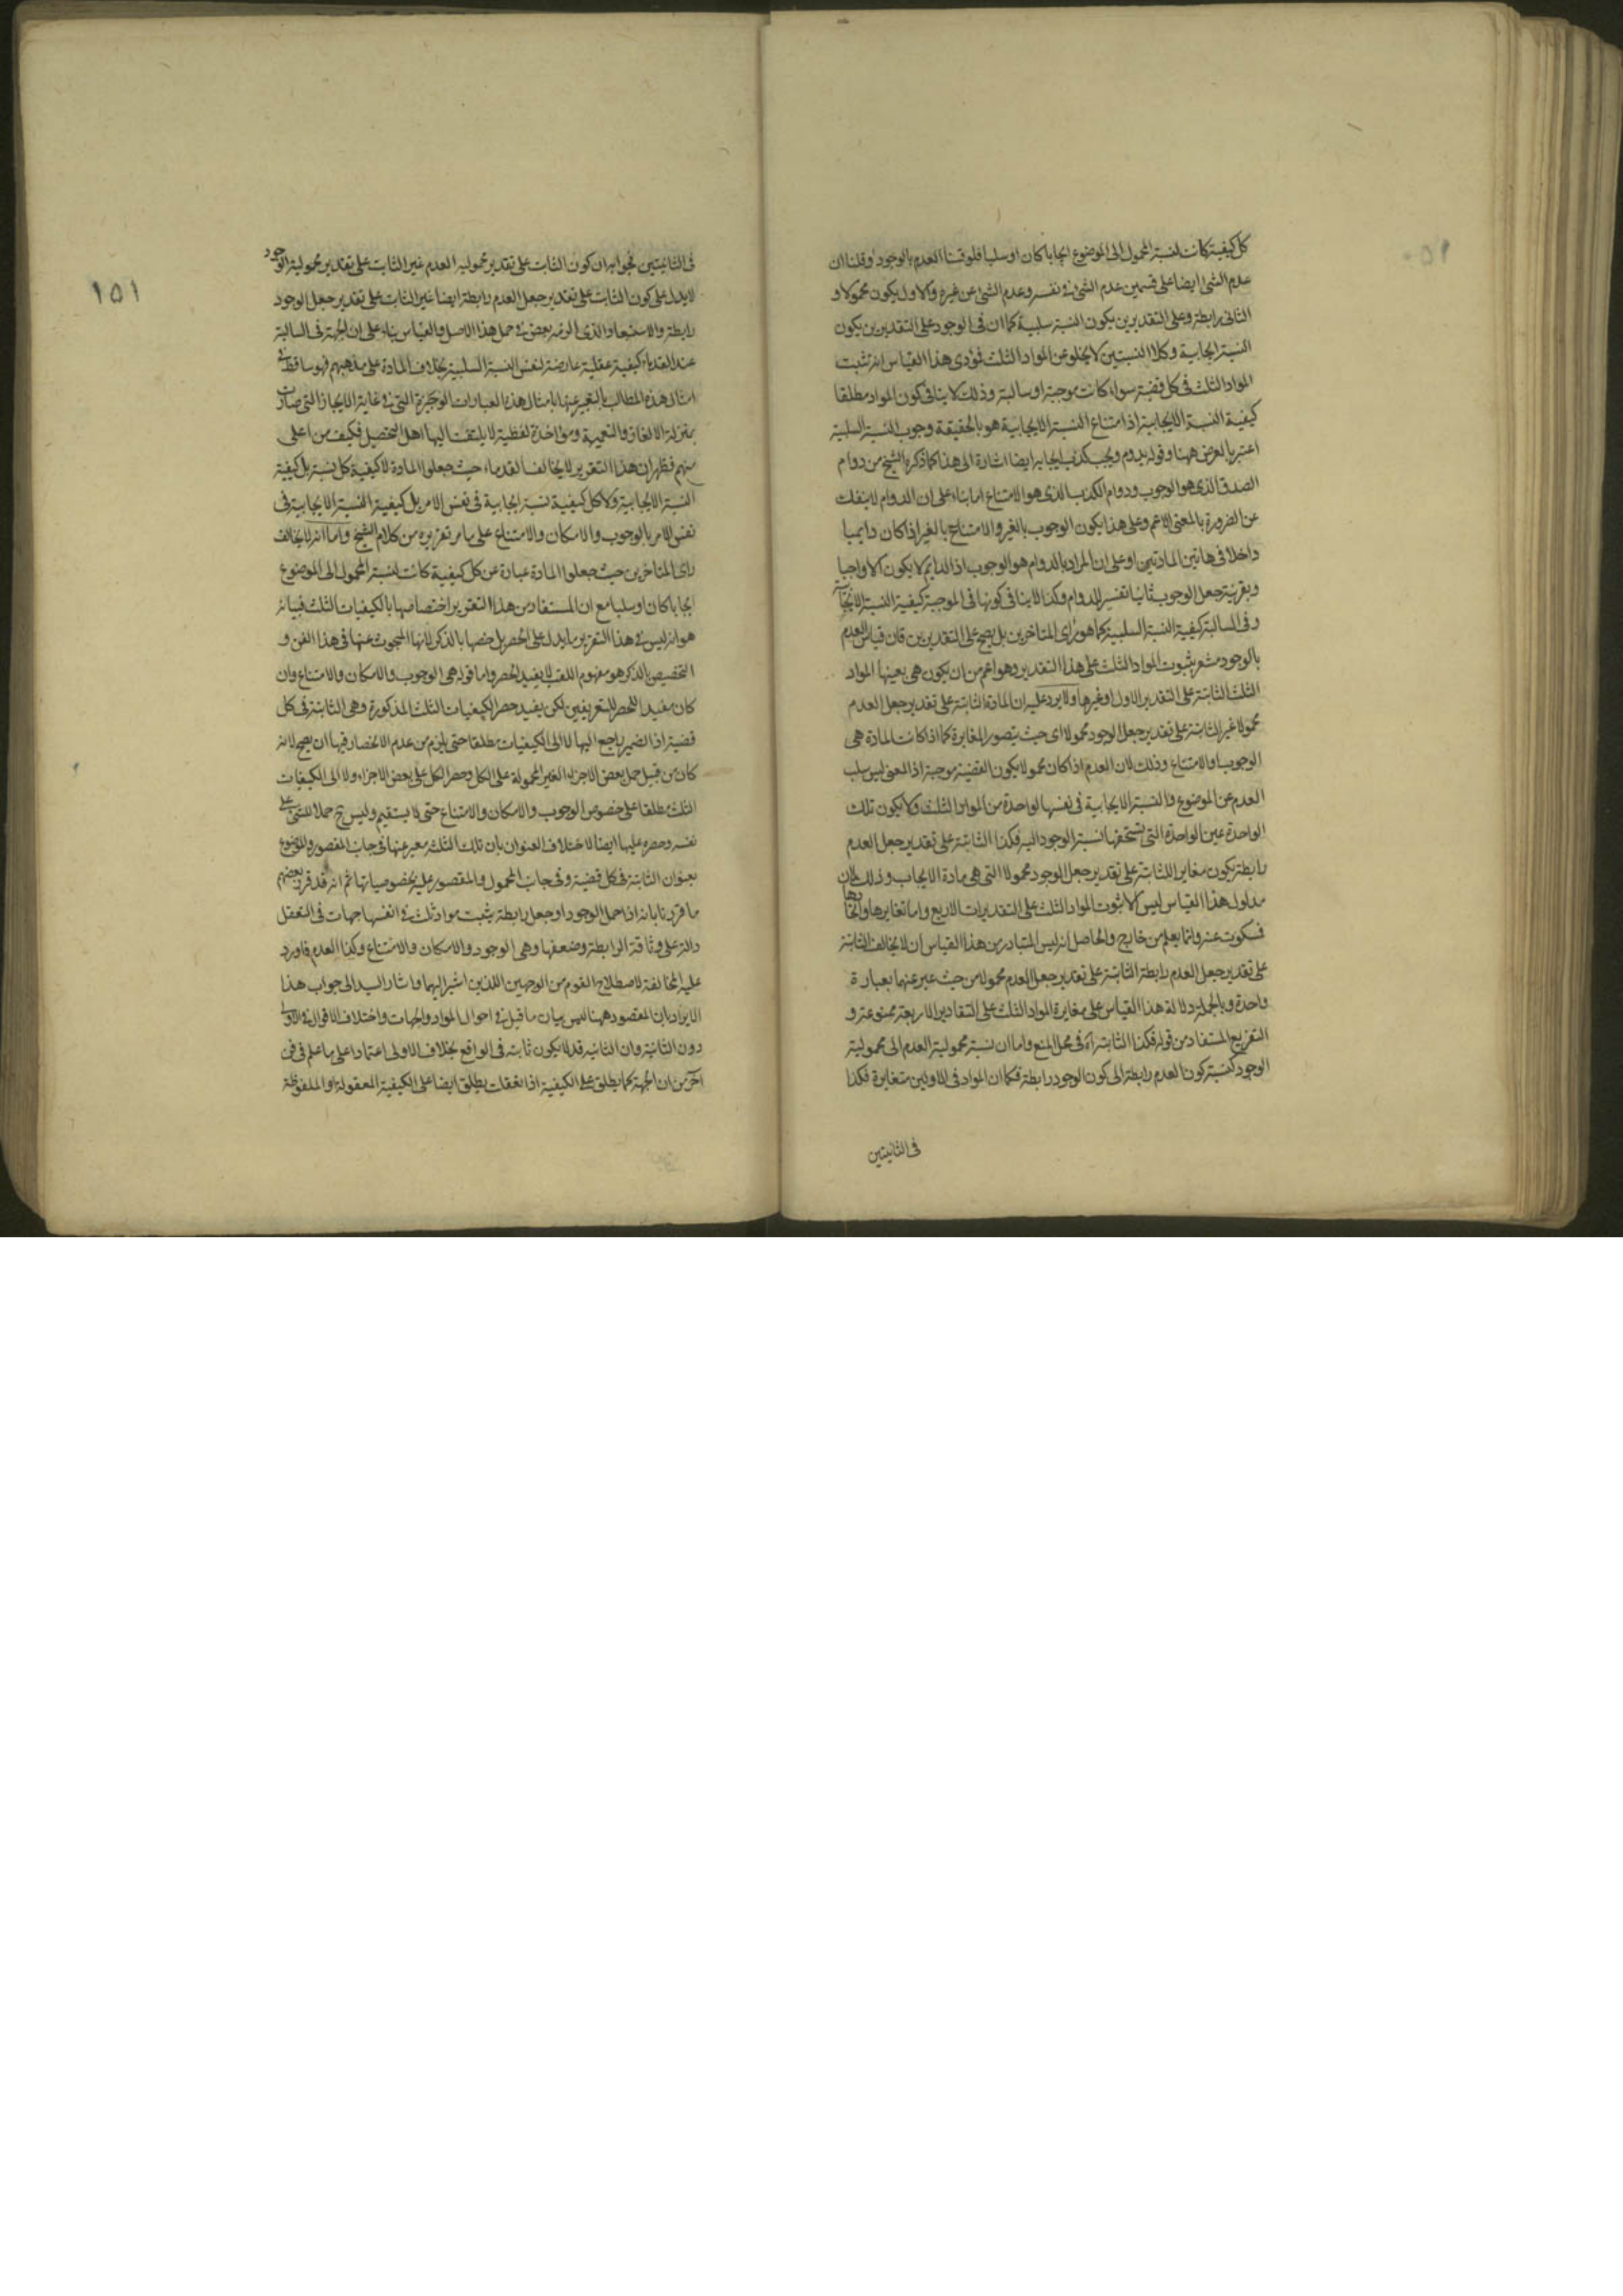 كل كيفية كانت لنسبة المحمول الى الموضوع ايجابا كان او سلبا فلو قسنا العدم بالوجود وقلنا ان
عدم الشئ ايضا على قسمين عدم الشئ فى نفسه وعدم الشئ عن غيره والاول يكون محمولا و
الثانى رابطة وعلى التقديرين يكون النسبة سلبية كما ان فى الوجود على التقديرين يكون
النسبة ايجابية وكلا النسبتين لا يخلو عن المواد الثلث فمؤدى هذا القياس انه تثبت
المواد الثلث فى كل قضية سواء كانت موجبة او سالبة وذلك لا ينافى كون المواد مطلقا
كيفية النسبة الايجابية اذ امتناع النسبة الايجابية هو بالحقيقة وجوب النسبة السلبية
اعتبر بالعرض ههنا وقوله يدوم ويجب كذب ايجابه ايضا اشارة الى هذا كما ذكره الشيخ من دوام
الصدق الذى هو الوجوب ودوام الكذب الذى هو الامتناع اما بناء على ان الدوام لا ينفك
عن الضرورة بالمعنى الاعم وعلى هذا يكون الوجوب بالغير والامتناع بالغير اذا كان دايميا
داخلا فى هاتين المادتين او على ان المراد بالدوام هو الوجوب اذ الدايم لا يكون الا واجبا
وبقرينة جعل الوجوب ثانيا تفسير للدوام وكذا لا ينافى كونها فى الموجبة كيفية النسبة الايجابية
وفى السالبة كيفية النسبة السلبية كما هو راى المتاخرين بل يصح على التقديرين فان قياس العدم
بالوجود مشعر بثبوت المواد الثلث على هذا التقدير وهو اعم من ان يكون هى بعينها المواد
الثلث الثابتة على التقدير الاول او غيرها ولا يرد عليه ان المادة الثابتة على تقدير جعل العدم
محمولا غير الثابتة على تقدير جعل الوجود محمولا اى حيث يتصور المغايرة كما اذا كانت المادة هى
الوجوب والامتناع وذلك لان العدم اذا كان محمولا يكون القضية موجبة اذ المعنى ليس سلب
العدم عن الموضوع فالنسبة الايجابية فى نفسها لواحدة من المواد الثلث ولا يكون تلك
الواحدة عين الواحدة التى تستحقها نسبة الوجود اليه فكذا الثابتة على تقدير جعل العدم
رابطة يكون مغايرا للثابتة على تقدير جعل الوجود محمولا التى هى مادة الايجاب وذلك لان
مدلول هذا القياس ليس الا ثبوت المواد الثلث على التقديرات الاربع واما تغايرها واتحادها
فسكوت عنه وانما يعلم من خارج والحاصل انه ليس المتبادر من هذا القياس ان لا يخالف الثابتة
على تقدير جعل العدم رابطة الثابتة على تقدير جعل العدم محمولا من حيث عبر عنهما بعبارة
واحدة وبالجملة دلالة هذا القياس على مغايرة المواد الثلث على التقادير الاربعة ممنوعة و
التفريع المستفاد من قوله فكذا الثابتة اه فى محل المنع واما ان نسبة محمولية العدم الى محمولية
الوجود كنسبة كون العدم رابطة الى كون الوجود رابطة فكما ان المواد فى الاولين متغايرة فكذا
فى الثانيتين
١٥١
فى الثانيتين فجوابه ان كون الثابت على تقدير محمولية العدم غير الثابت على تقدير محمولية الوجود
لا يدل على كون الثابت على تقدير جعل العدم رابطة ايضا غير الثابت على تقدير جعل الوجود
رابطة والاستبعاد الذى الوضه بعض فى حمل هذا الاصل والقياس بناء على ان الجهة فى السالبة
عند القدماء كيفية عقلية عارضة لنفس النسبة السلبية بخلاف المادة على مذهبهم فهو ساقط فى
امثال هذه المطالب بالتعبير عنها بامثال هذه العبارات الوجيزة التى فى غاية الايجاز التى صارت
بمنزلة الالغاز والتعمية ومؤاخذة لفظية لا يلتفت اليها اهل التحصيل فكيف من اعلى
منهم فظهر ان هذا التقرير لا يخالف القدماء حيث جعلوا المادة لا كيفية كل نسبة بل كيفية
النسبة الايجابية ولا كل كيفية نسبة ايجابية فى نفس الامر بل كيفية النسبة الايجابية فى
نفس الامر بالوجوب والامكان والامتناع على ما مر تقريره من كلام الشيخ واما انه لا يخالف
راى المتاخرين حيث جعلوا المادة عبارة عن كل كيفية كانت لنسبة المحمول الى الموضوع
ايجابا كان او سلبا مع ان المستفاد من هذا التقرير اختصاصها بالكيفيات الثلث فبيانه
هو انه ليس فى هذا التقرير ما يدل على الحصر بل خصها بالذكر لانها المبحوث عنها فى هذا الفن و
التخصيص بالذكر هو مفهوم اللقب لا يفيد الحصر واما قوله هى الوجوب والامكان والامتناع وان
كان مفيدا للحصر للتعريفين لكن يفيد حصر الكيفيات الثلث المذكورة وهى الثابتة فى كل
قضية اذ الضمير راجع اليها لا الى الكيفيات مطلقا حتى يلزم من عدم الانحصار فيها ان يصح لانه
كان من قبيل حمل بعض الاجزاء الغير المحمولة على الكل وحصر الكل على بعض الاجزاء ولا الى الكيفيات
الثلث مطلقا على خصوص الوجوب والامكان والامتناع حتى لا يستقيم وليس ح حملا للشئ على
نفسه وحصره عليها ايضا لاختلاف العنوان بان تلك الثلث معبر عنها فى جانب المقصور والموضوع
بعنوان الثابتة فى كل قضية وفى جانب المحمول والمقصور عليه بخصوصياتها ثم انه قد قرر بعضهم
ما قررنا بانه اذا حمل الوجود او جعل رابطة يثبت مواد ثلث فى انفسها جهات فى التعقل
دالة على وثاقة الرابطة وضعفها وهى الوجود والامكان والامتناع وكذا العدم فاورد
عليه المخالفة لاصطلاح القوم من الوجهين اللذين اشير اليهما واشار السيد الى جواب هذا
الايراد بان المقصود ههنا ليس بيان ما قيل فى احوال المواد والجهات واختلاف الاقوال فى الاولى
دون الثانية وان الثانية قد لا يكون ثابتة فى الواقع بخلاف الاولى اعتمادا على ما علم فى فن
اخر من ان الجهة كما يطلق على الكيفية اذا تعقلت يطلق ايضا على الكيفية المعقولة او الملفوظة